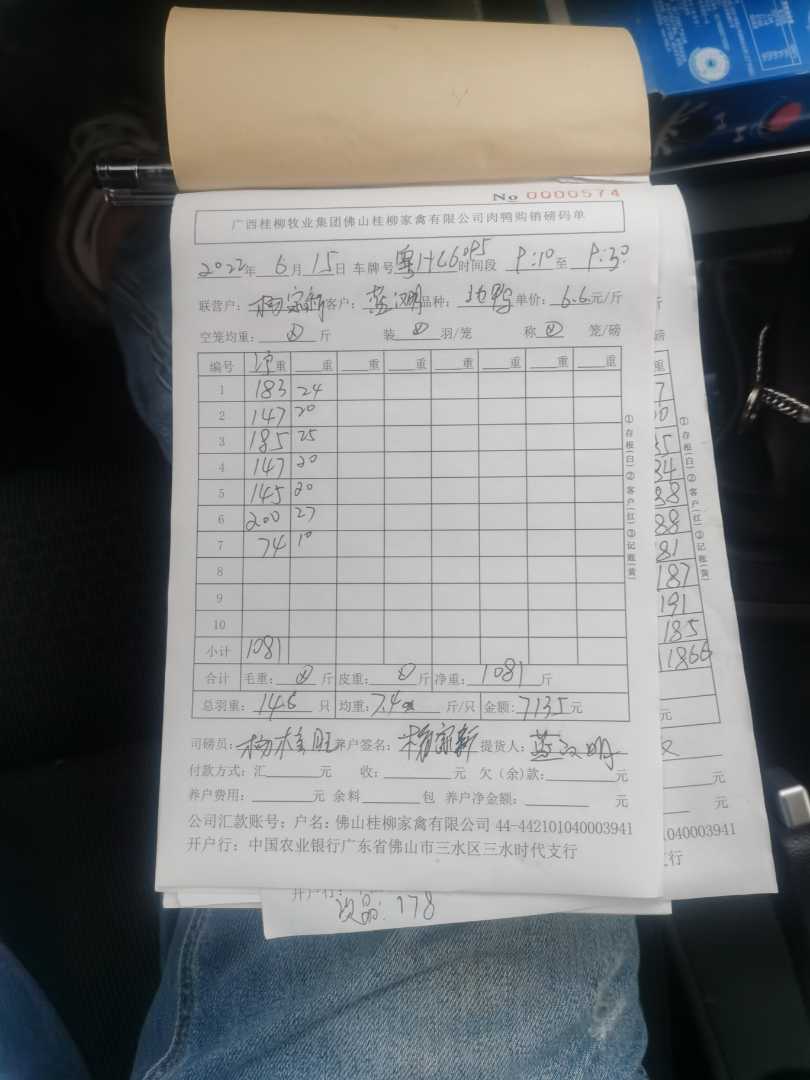 No 0000574
广西桂柳牧业集团佛山桂柳家禽有限公司肉鸭购销磅码单
2022年 6月 15日 车牌号 粤H66095 时间段 P:10 至 P:30
联营户: 杨家新 客户: 蓝汉明 品种: 边鸭 单价: 6.6元/斤
空笼均重: 斤 装 羽/笼 称 笼/磅
编号 净重 重 重 重 重 重 重 重
1 183 24
2 147 20
3 185 25
4 147 20
5 145 20
6 200 27
7 74 10
8
9
10
小计 1081
合计 毛重: 斤 皮重: 斤 净重: 1081 斤
总羽重: 146 只 均重: 7.4 斤/只 金额: 7135元
司磅员: 杨桂旺 养户签名: 杨家新 提货人: 蓝汉明
付款方式: 汇 元 收: 元 欠(余)款: 元
养户费用: 元 余料 包 养户净金额: 元
公司汇款账号: 户名: 佛山桂柳家禽有限公司 44-442101040003941
开户行: 中国农业银行广东省佛山市三水区三水时代支行
①存根(白)②客户(红)③记账(黄)
磅
重
①存根(白)②客户(红)③记账(黄)
88
81
187
191
185
1866
元
元
元
040003941
行
开户行:
次品: 178